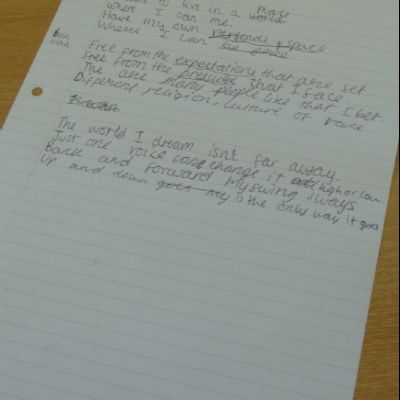 to live in a world place
where I can me.
Have my own personal space
Where I can be
Free from the expectations that are set
Free from the pressure that I face
The are many people like that I bet.
Different religion, culture or race
The world I dream isn't far away.
Just one voice can change it high or low
Back and forward my swing sways
Up and down goes my is the only way it goes